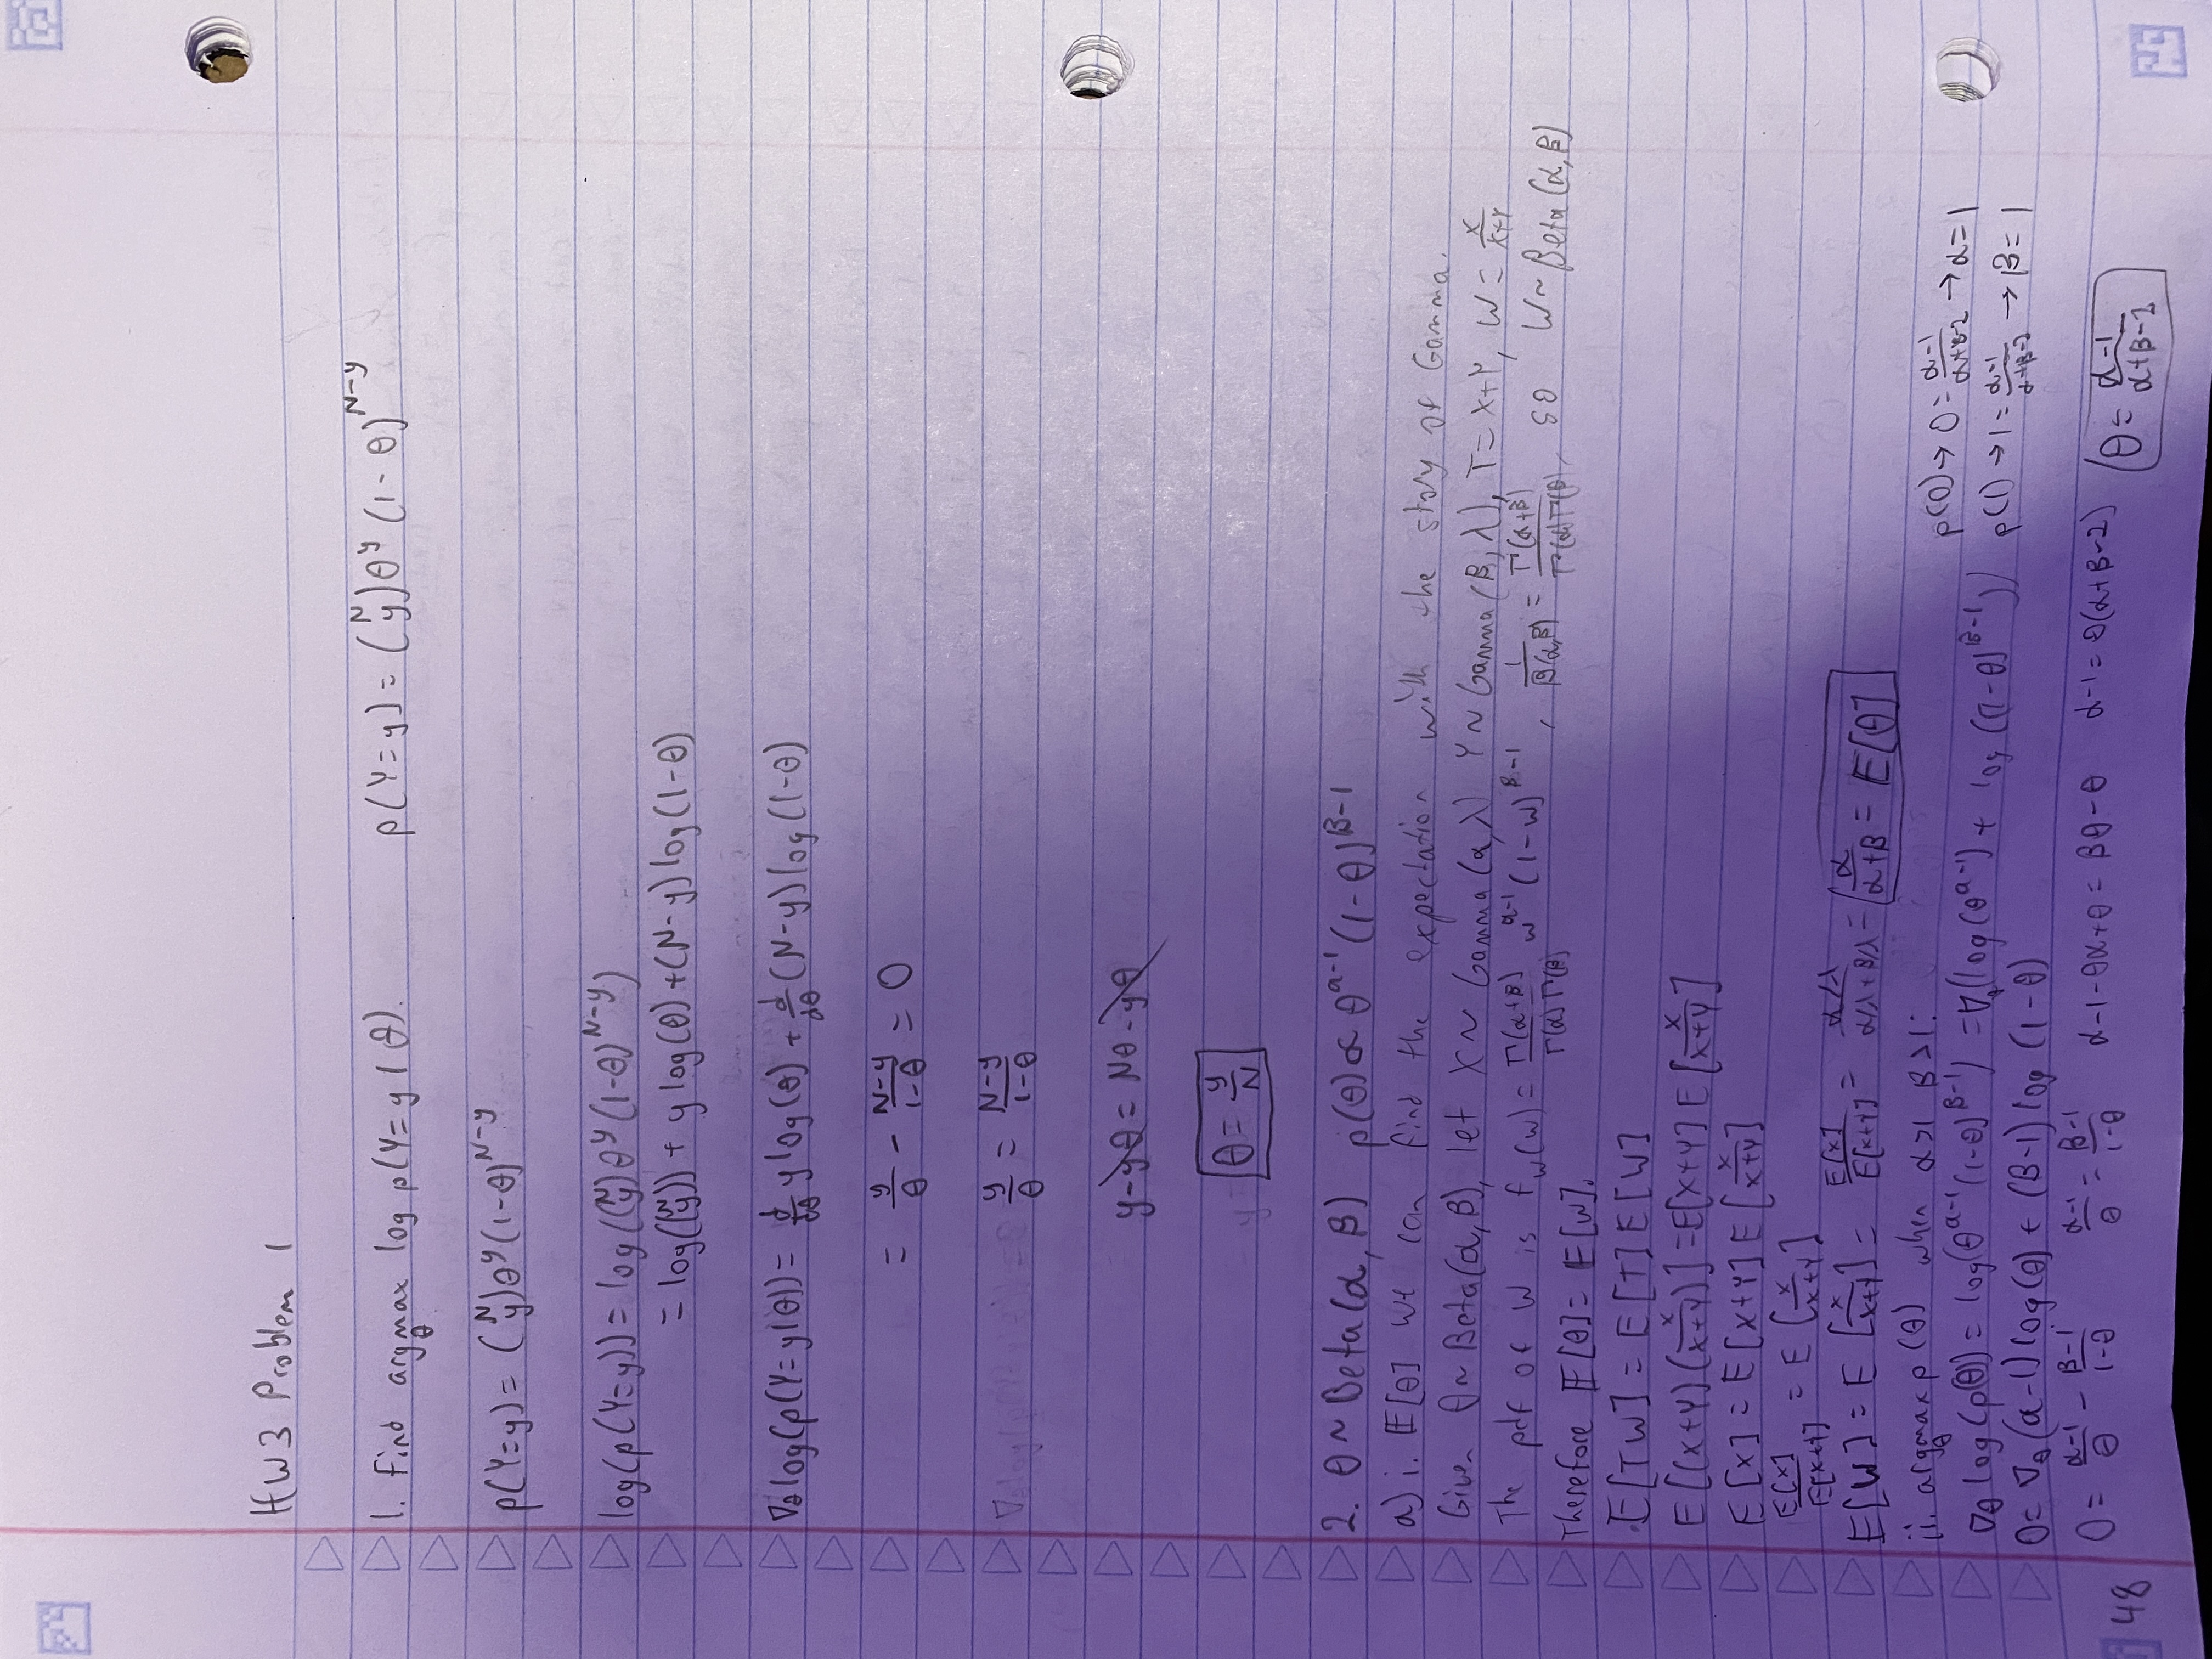 HW3 Problem 1
1. Find argmax_θ log p(Y=y|θ). p(Y=y) = (N y)θ^y (1-θ)^{N-y}
p(Y=y) = (N y)θ^y(1-θ)^{N-y}
log(p(Y=y)) = log((N y)θ^y (1-θ)^{N-y})
= log((N y)) + y log(θ) + (N-y) log(1-θ)
∇_θ log(p(Y=y|θ)) = d/dθ y log(θ) + d/dθ (N-y) log(1-θ)
= y/θ - (N-y)/(1-θ) = 0
y/θ = (N-y)/(1-θ)
y-yθ = Nθ-yθ
θ = y/N
2. θ ~ Beta(α, β) p(θ) ∝ θ^{α-1} (1-θ)^{β-1}
a) i. E[θ] We can find the expectation with the story of Gamma.
Given θ ~ Beta(α, β), let X ~ Gamma(α, λ) Y ~ Gamma(β, λ), T = X+Y, W = X/(X+Y)
The pdf of W is f_W(w) = Γ(α+β)/(Γ(α)Γ(β)) w^{α-1} (1-w)^{β-1}, 1/β(α,β) = Γ(α+β)/(Γ(α)Γ(β)), so W ~ Beta(α, β)
Therefore E[θ] = E[W].
E[TW] = E[T] E[W]
E[(X+Y)(X/(X+Y))] = E[X+Y] E[X/(X+Y)]
E[X] = E[X+Y] E[X/(X+Y)]
E[X]/E[X+Y] = E[X/(X+Y)]
E[W] = E[X/(X+Y)] = E[X]/E[X+Y] = (α/λ)/(α/λ+β/λ) = α/(α+β) = E[θ]
ii. argmax_θ p(θ) when α>1 β>1:
p(0) → 0 = (α-1)/(α+β-2) → α=1
∇_θ log(p(θ)) = log(θ^{α-1} (1-θ)^{β-1}) = ∇_θ(log(θ^{α-1}) + log((1-θ)^{β-1}))
p(1) → 1 = (α-1)/(α+β-2) → β=1
0 = ∇_θ (α-1) log(θ) + (β-1) log(1-θ)
0 = (α-1)/θ - (β-1)/(1-θ) (α-1)/θ = (β-1)/(1-θ) α-1-θα+θ = βθ-θ α-1 = θ(α+β-2) θ = (α-1)/(α+β-2)
48